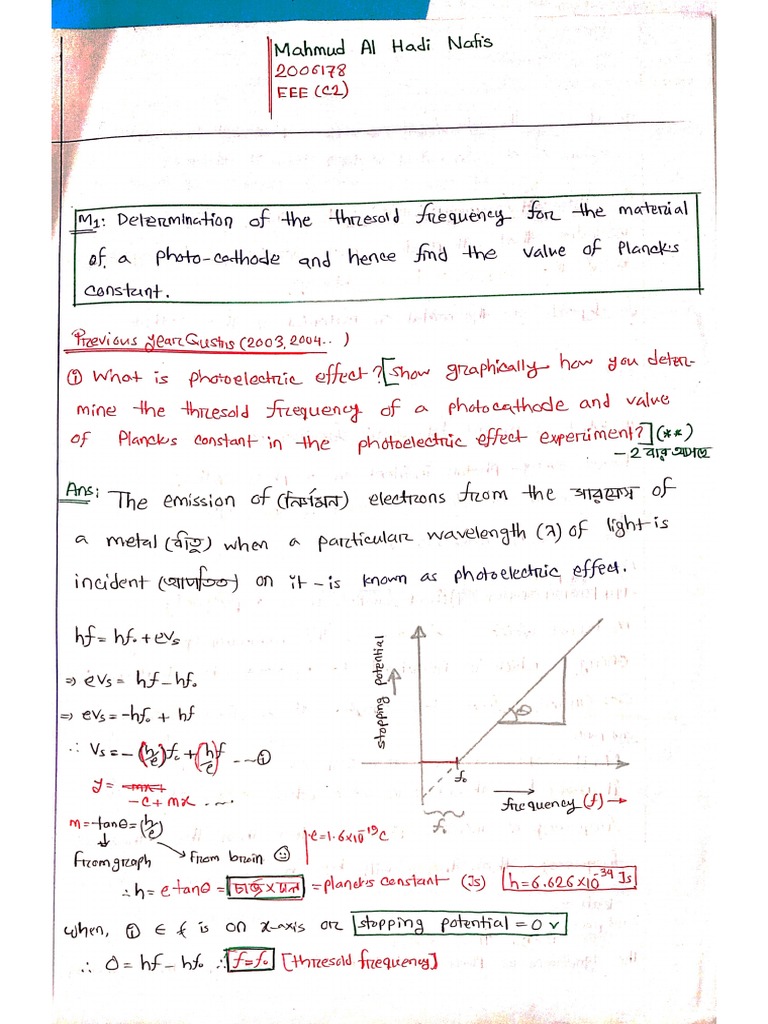 Mahmud Al Hadi Nafis
2006178
EEE (C2)
M1: Determination of the thresold frequency for the material
of a photo-cathode and hence find the value of Planck's
constant.
Previous year Qustns (2003, 2004.. )
① What is photoelectric effect? [Show graphically how you deter-
mine the thresold frequency of a photocathode and value
of Planck's constant in the photoelectric effect experiment?] (**)
- 2 বার আসছে
Ans: The emission of (নির্গমন) electrons from the of
a metal (ধাতু) when a particular wavelength (λ) of light is
incident (আপতিত) on it - is known as photoelectric effect.
hf = hf₀ + eVs
⇒ eVs = hf - hf₀
⇒ eVs = -hf₀ + hf
∴ Vs = - (h/e) f₀ + (h/e) f ... ①
y =
-c + mx ....
m = tanθ = (h/e)
From graph
From brain
e = 1.6 × 10⁻¹⁹ C
stopping potential
θ
f₀
f₀
frequency (f) →
∴ h = e tanθ = চার্জ × ঢাল = planck's constant (Js) h = 6.626 × 10⁻³⁴ Js
when, ① ∈ f is on x-axis or stopping potential = 0 v
∴ 0 = hf - hf₀ ∴ f = f₀ [thresold frequency]